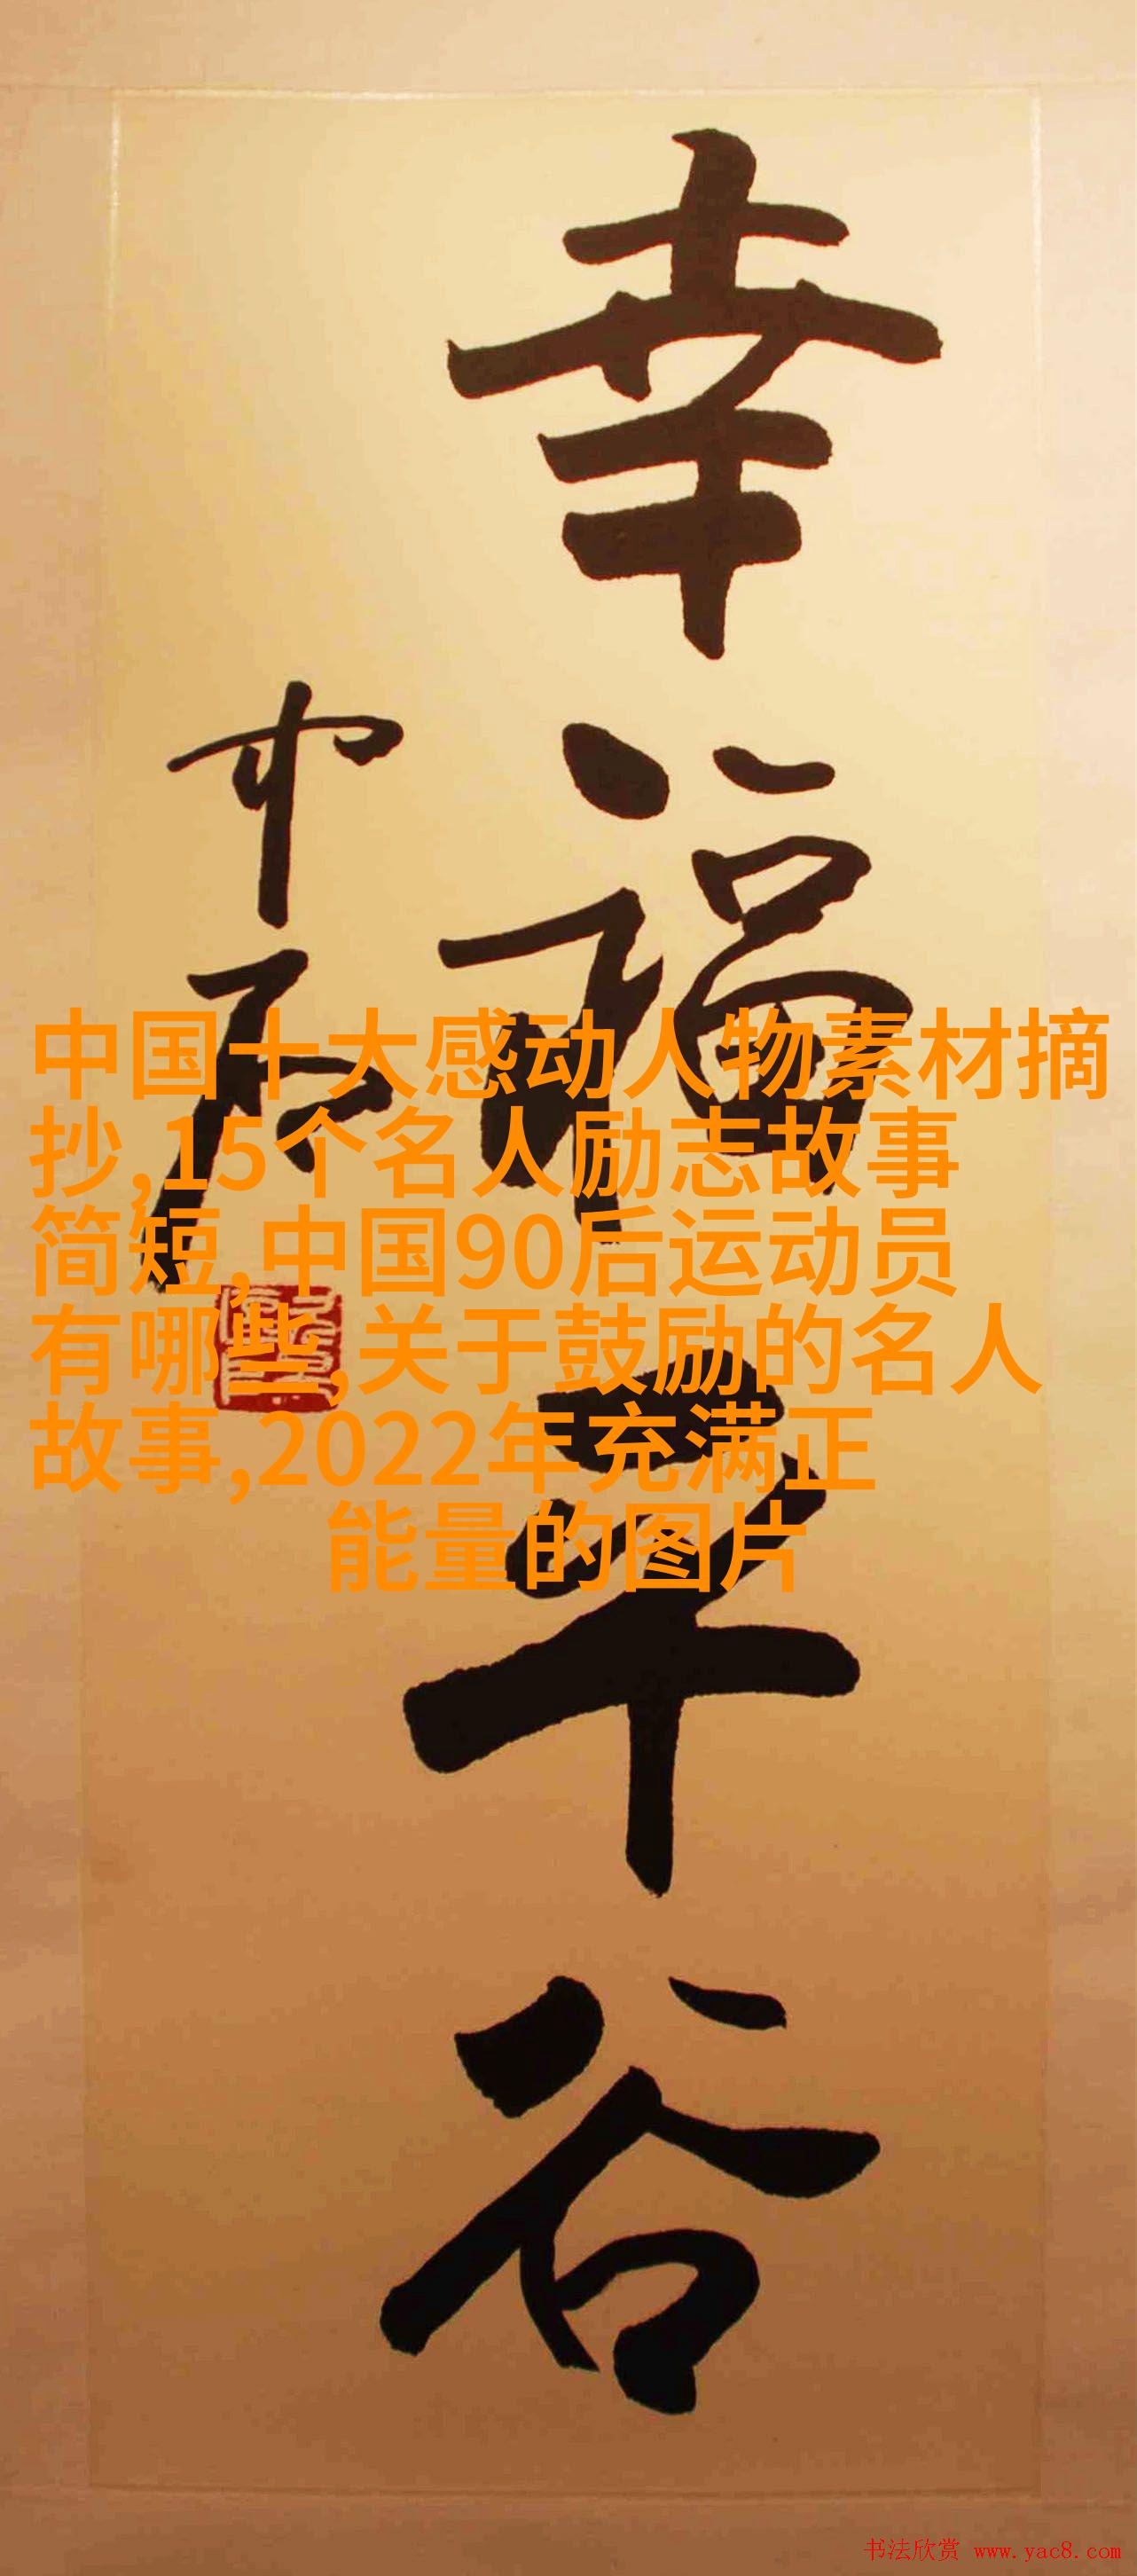 幸福平谷
中石
中国十大感动人物素材摘
抄,15个名人励志故事
简短,中国90后运动员
有哪些,关于鼓励的名人
故事,2022年充满正
能量的图片
书法欣赏 www.yac8.com